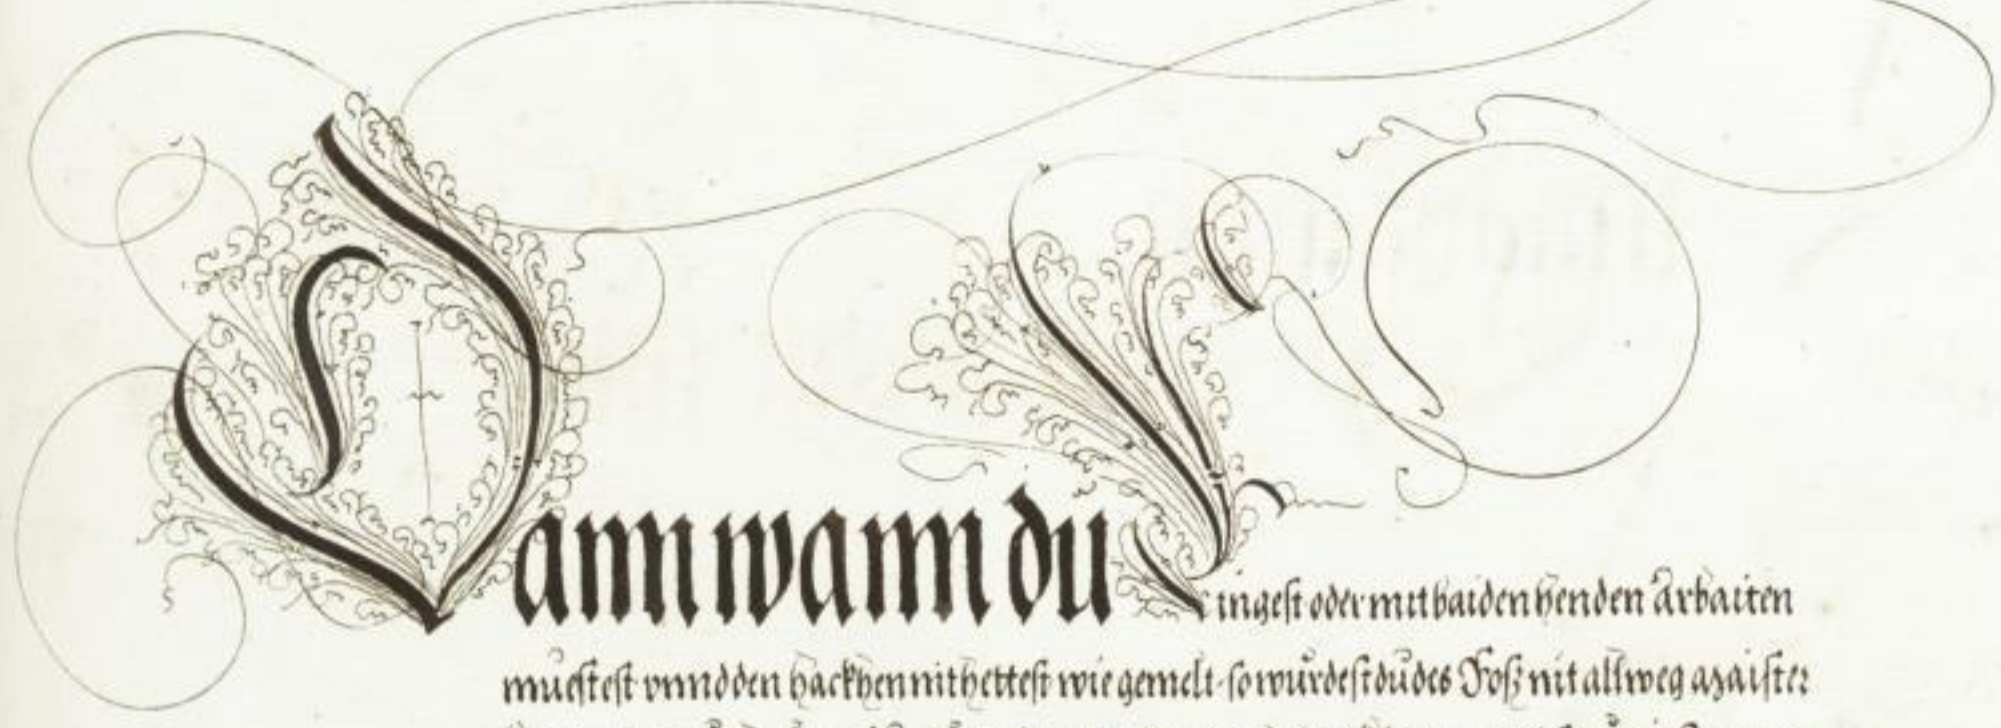 Dann wann du Ringest oder mit baiden henden arbaiten
müestest vnnd den hackhen nit hettest wie gemelt · so würdest dü des Roß nit allweg